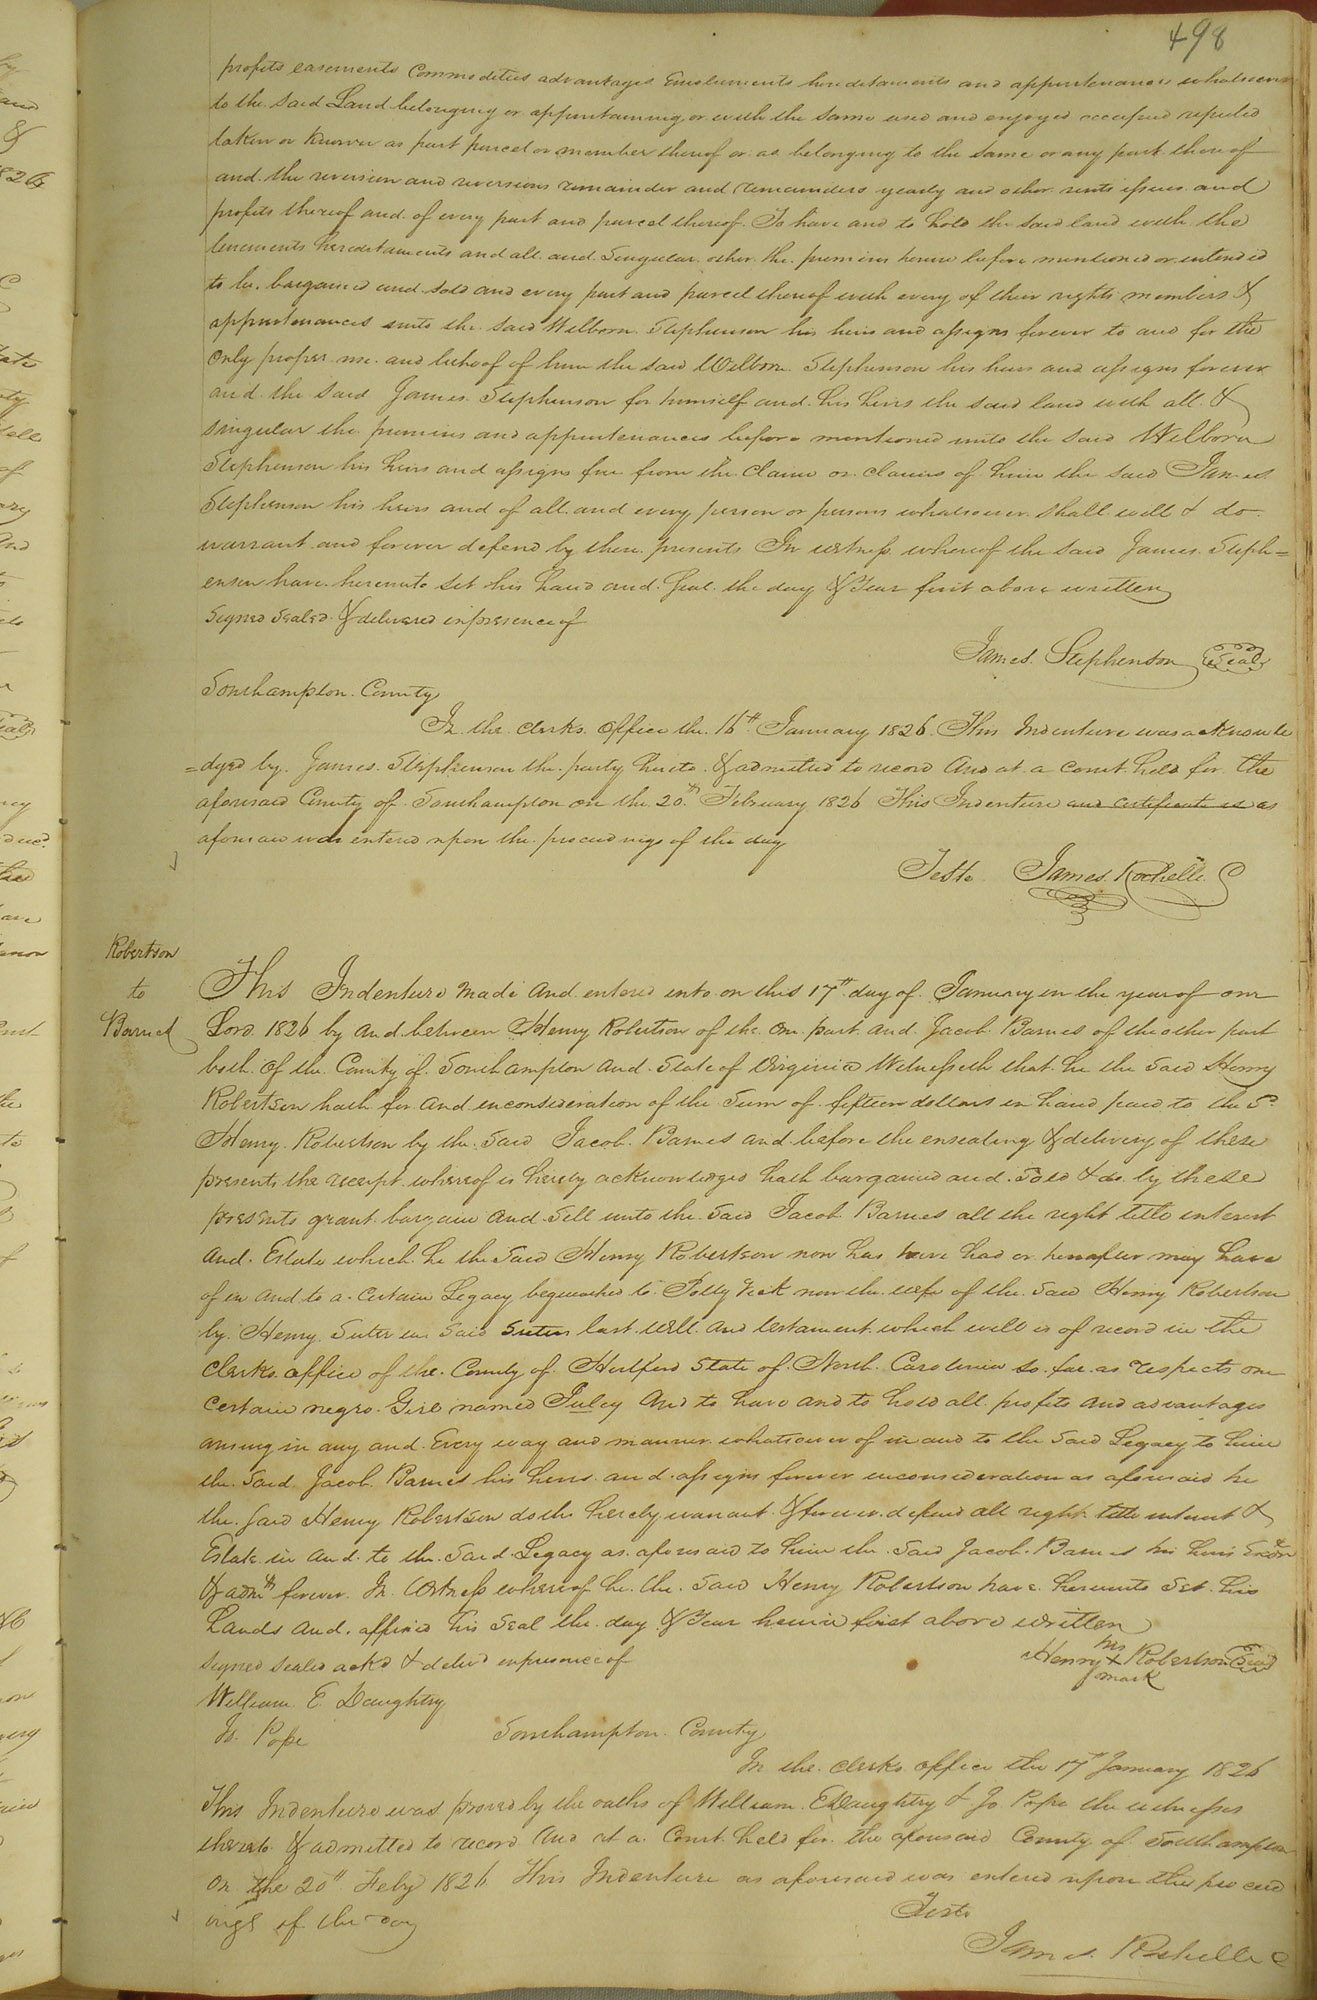 498
profits easements Commodities advantages Emoluments hereditaments and appurtenances whatsoever
to the said Land belonging or appurtaining or with the same used and enjoyed occupied reputed
taken or known as part parcel or member thereof or as belonging to the same or any part thereof
and the reversion and reversions remainder and remainders yearly and other rents issues and
profits thereof and of every part and parcel thereof. To have and to hold the said land with the
tenements hereditaments and all and Singular other the premises herein before mentioned or intended
to be bargained and sold and every part and parcel thereof with every of their rights members &
appurtenances unto the said Wilborn Stephenson his heirs and assigns forever to and for the
Only proper use and behoof of him the said Wilborn Stephenson his heirs and assigns forever
and the said James Stephenson for himself and his heirs the said land with all &
singular the premises and appurtenances before mentioned unto the said Wilborn
Stephenson his heirs and assigns free from the claim or claims of him the said James
Stephenson his heirs and of all and every person or persons whatsoever shall will & do
warrant and forever defend by these presents In witness whereof the said James Steph=
enson have hereunto set his hand and Seal the day & Year first above written
Signed Sealed & delivered in presence of
James Stephenson Seal
Southampton County
In the clerks office the 16th January 1826 This Indenture was acknowle
=dged by James Stephenson the party hereto & admitted to record And at a Court held for the
aforesaid County of Southampton on the 20th February 1826 This Indenture and certificate is as
aforesaid was entered upon the proceedings of the day
Teste James Rochelle C
Robertson
to
Barnes
This Indenture made and entered into on this 17th day of January in the year of our
Lord 1826 by and between Henry Robertson of the one part and Jacob Barnes of the other part
both of the County of Southampton and State of Virginia Witnesseth that he the said Henry
Robertson hath for and in consideration of the Sum of fifteen dollars in hand paid to the Sd
Henry Robertson by the said Jacob Barnes and before the ensealing & delivery of these
presents the receipt whereof is hereby acknowledged hath bargained and sold & do by these
presents grant bargain and Sell unto the said Jacob Barnes all the right title interest
and Estate which he the said Henry Robertson now has have had or hereafter may have
of in and to a certain Legacy bequeathed to Polly Vick now the wife of the said Henry Robertson
by Henry Suter in said Suters last will and testament which will is of record in the
Clerks office of the County of Hertford State of North Carolina so far as respects one
certain negro Girl named Juley And to have and to hold all profits and advantages
arising in any and Every way and manner whatsoever of in and to the said Legacy to him
the said Jacob Barnes his heirs and assigns forever in consideration as aforesaid he
the said Henry Robertson doth hereby warrant & forever defend all right title interest &
Estate in and to the said Legacy as aforesaid to him the said Jacob Barnes his heirs Exors
& admrs forever In Witness whereof he the said Henry Robertson have hereunto Set his
hands and affixed his Seal the day & Year herein first above written
signed sealed ackd & delivd in presence of
his
Henry X Robertson Seal
mark
William E Daughtry
Jo. Pope
Southampton County
In the clerks office the 17th January 1826
This Indenture was proved by the oaths of William E Daughtry & Jo Pope the witnesses
thereto & admitted to record And at a Court held for the aforesaid County of Southampton
On the 20th Feby 1826 This Indenture as aforesaid was entered upon the proceed
ings of the day
Teste
James Rochelle C